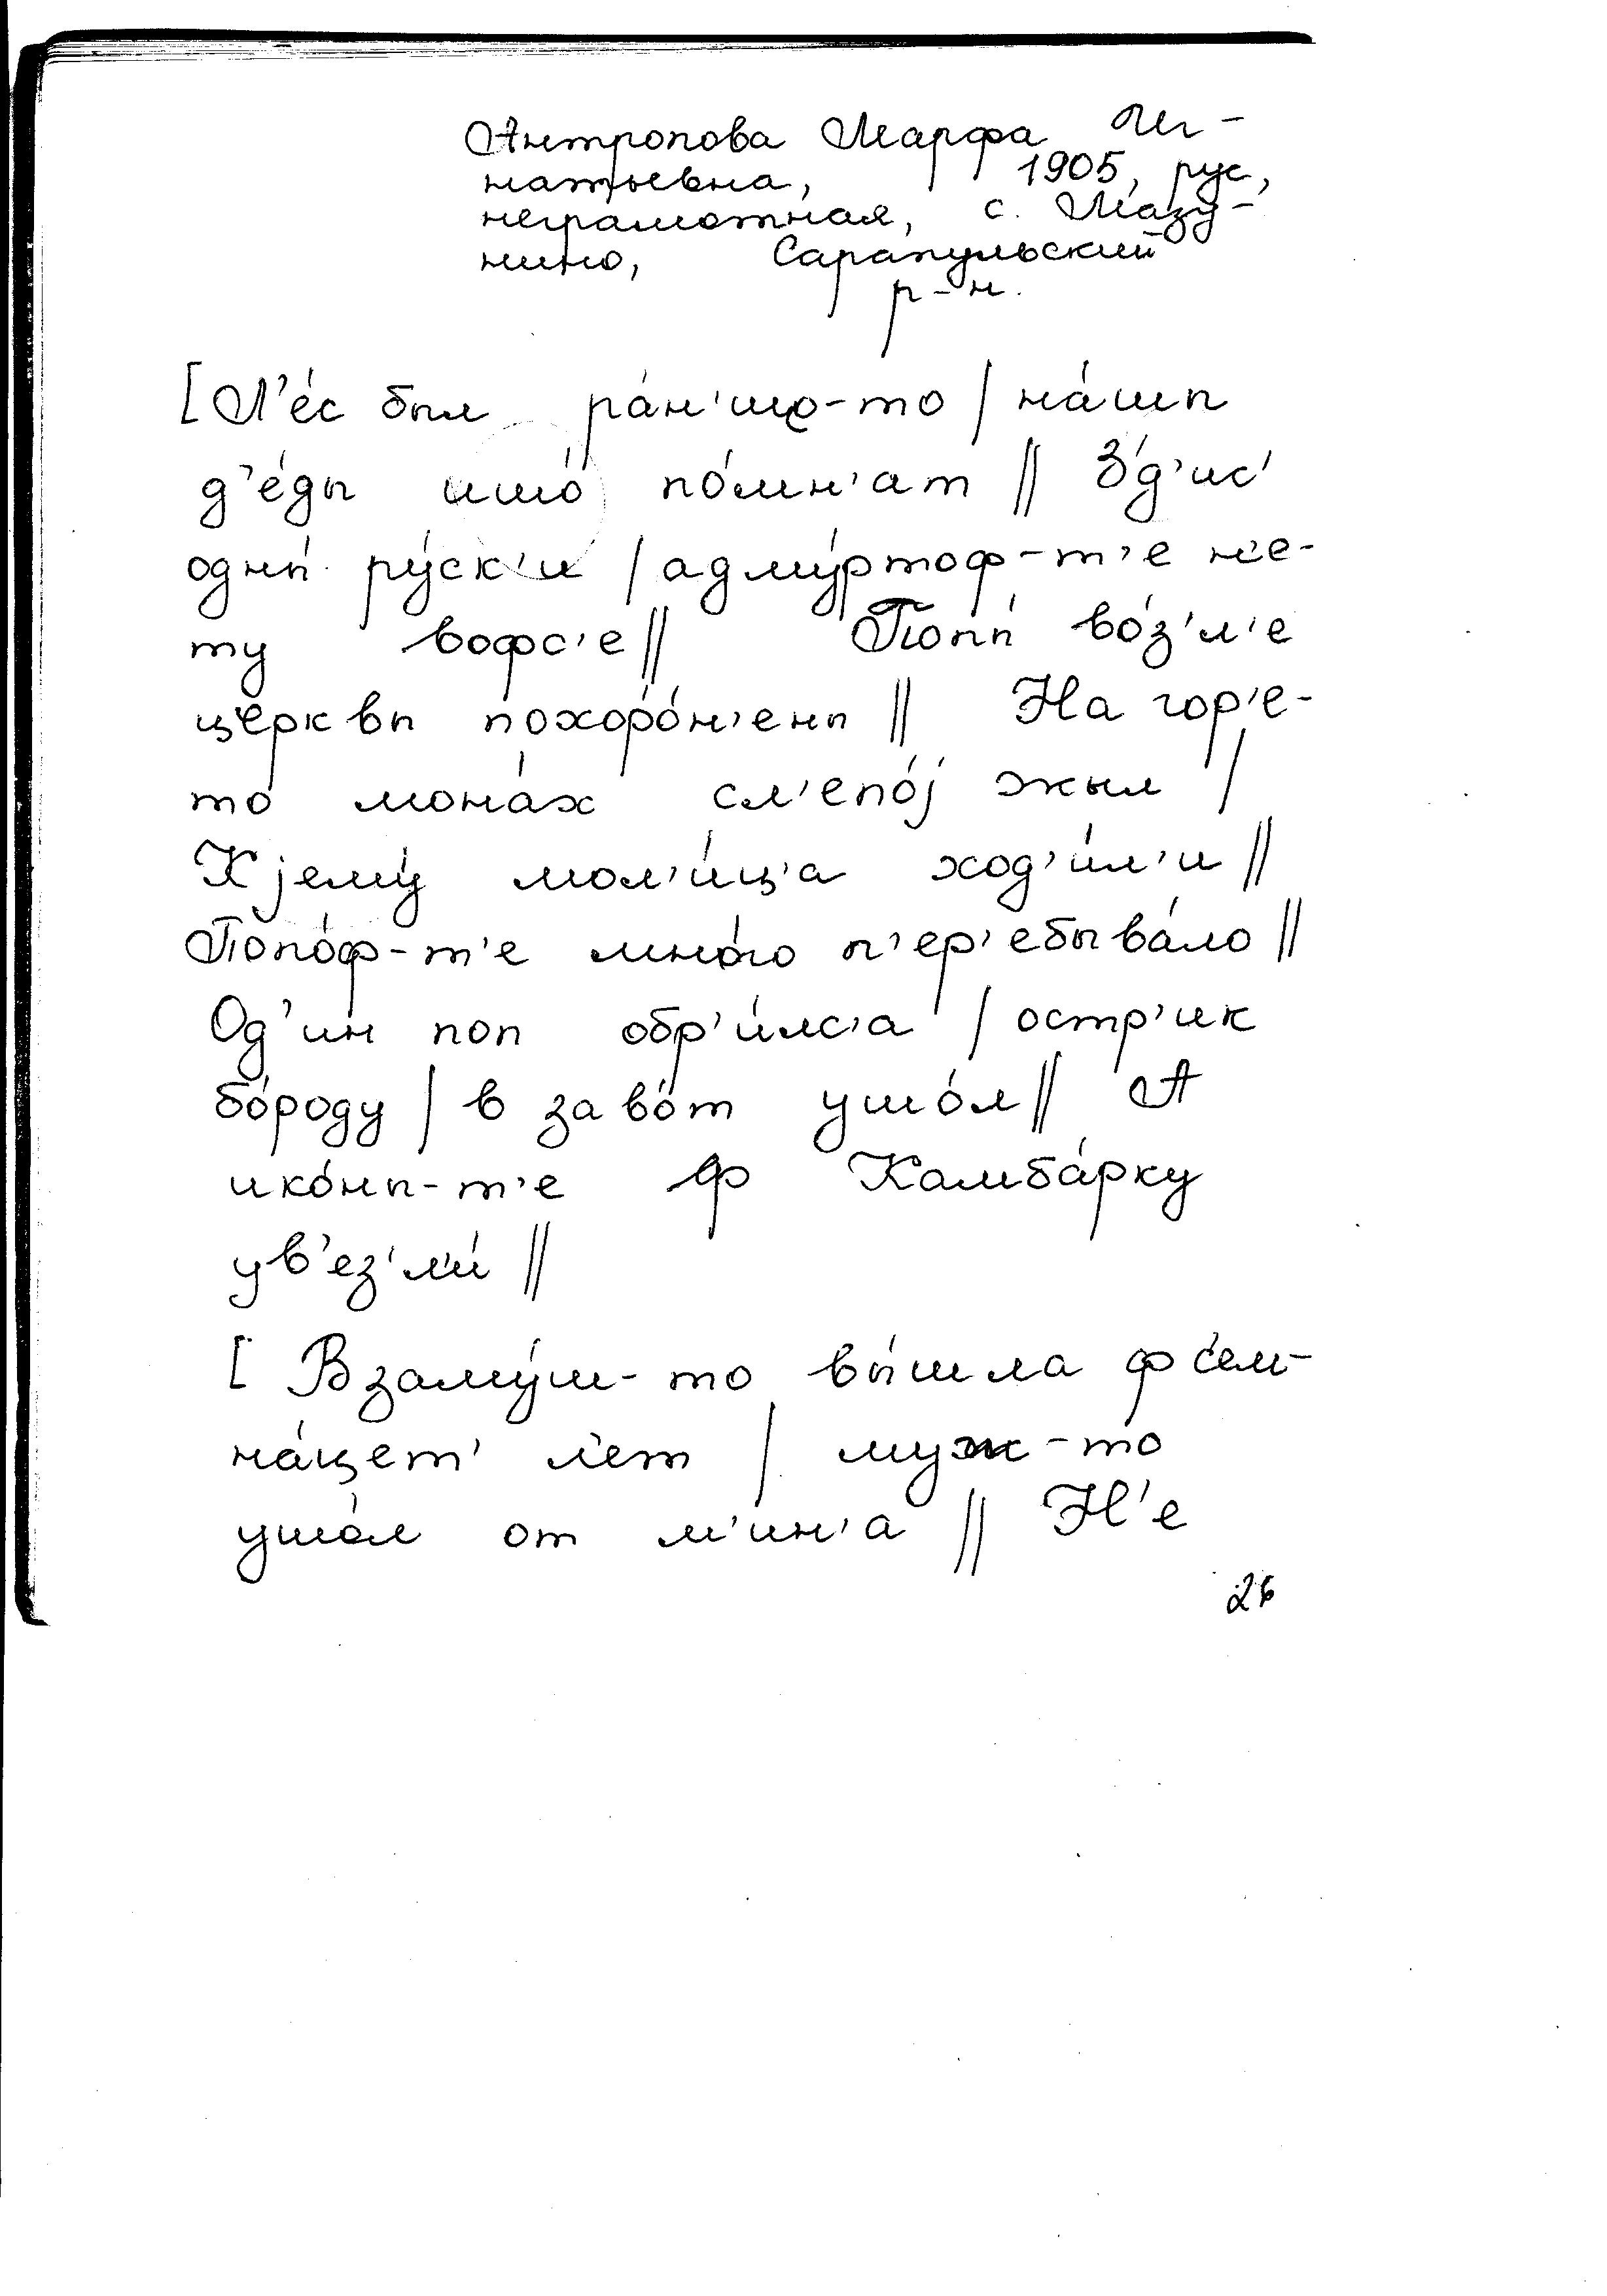 Антропова Марфа Иг-
натьевна, 1905, рус,
неграмотная, с. Мазу-
нино, Сарапульский
р-н.
[Л'е́с был ра́н'шо-то / на́шы
д'е́ды ишо́ по́мн'ат // З'д'ис'
одны́ ру́ск'и / адму́ртоф-т'е н'е-
ту вофс'е // Попы́ во́з'л'е
це́рквы похоро́н'ены // На гор'е-
то мона́х сл'епо́j жыл /
К jему́ мол'и́ц'а ход'и́л'и //
Попо́ф-т'е мно́го п'ер'ебыва́ло //
Од'ин поп обр'и́лс'а / остр'ик
бо́роду / в заво́т ушо́л // А
ико́ны-т'е ф Камба́рку
ув'ез'л'и́ //
[ Взаму́ш-то вы́шла ф с'ем-
на́цет' л'ет / муж-то
ушо́л от м'ин'а // Н'е
26